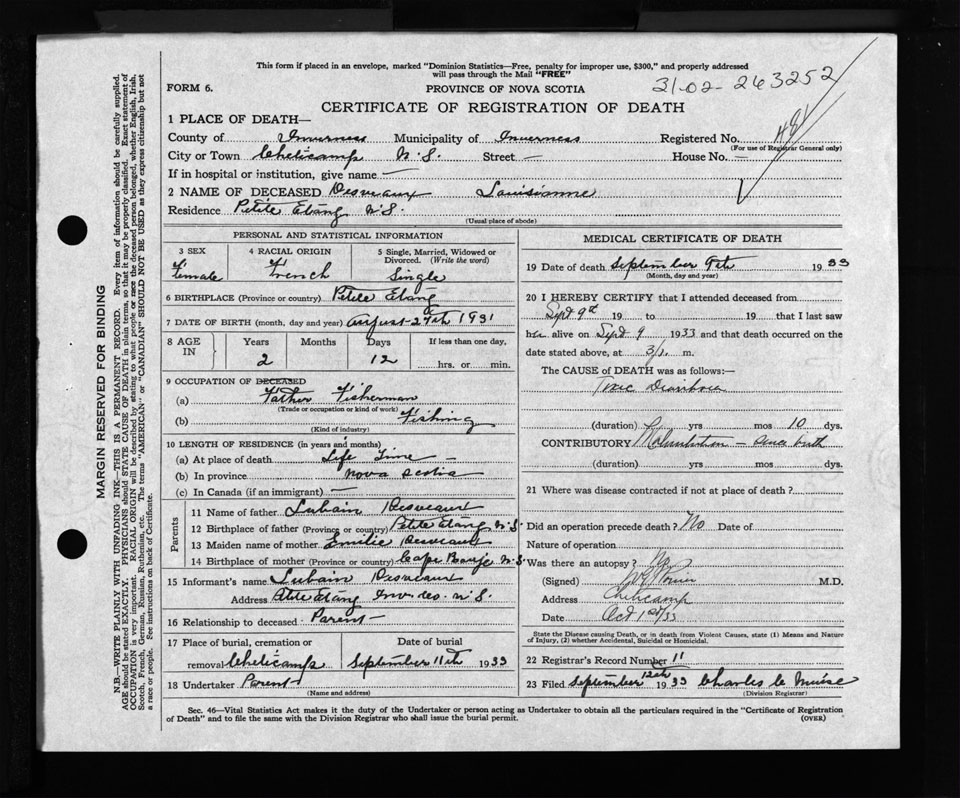 This form if placed in an envelope, marked "Dominion Statistics—Free, penalty for improper use, $300," and properly addressed
will pass through the Mail "FREE"
31-02-263252
FORM 6.
PROVINCE OF NOVA SCOTIA
CERTIFICATE OF REGISTRATION OF DEATH
1 PLACE OF DEATH—
County of Inverness Municipality of Inverness Registered No. 481
(For use of Registrar General only)
City or Town Cheticamp N.S. Street — House No. —
If in hospital or institution, give name —
2 NAME OF DECEASED Desveaux Louisianne
Residence Petite Etang N.S.
(Usual place of abode)
PERSONAL AND STATISTICAL INFORMATION
3 SEX 4 RACIAL ORIGIN 5 Single, Married, Widowed or Divorced. (Write the word)
Female French Single
6 BIRTHPLACE (Province or country) Petite Etang
7 DATE OF BIRTH (month, day and year) August 27th 1931
8 AGE IN Years Months Days If less than one day,
2 12 hrs. or min.
9 OCCUPATION OF DECEASED
(a) Father Fisherman
(Trade or occupation or kind of work)
(b) Fishing
(Kind of industry)
10 LENGTH OF RESIDENCE (in years and months)
(a) At place of death Life Time —
(b) In province Nova Scotia
(c) In Canada (if an immigrant) —
Parents
11 Name of father Lubain Desveaux
12 Birthplace of father (Province or country) Petite Etang N.S.
13 Maiden name of mother Emilie Desveaux
14 Birthplace of mother (Province or country) Cape Rouge N.S.
15 Informant's name Lubain Desveaux
Address Petite Etang Inv. Co. N.S.
16 Relationship to deceased Parent —
17 Place of burial, cremation or removal Cheticamp
Date of burial September 11th 1933
18 Undertaker Parent
(Name and address)
MEDICAL CERTIFICATE OF DEATH
19 Date of death September 9th 1933
(Month, day and year)
20 I HEREBY CERTIFY that I attended deceased from
Sept 9th 19 to 19 that I last saw
her alive on Sept 9 1933 and that death occurred on
date stated above, at m.
The CAUSE of DEATH was as follows:—
Diarrhoea
(duration) yrs mos 10 dys.
CONTRIBUTORY — birth
(duration) yrs mos dys.
21 Where was disease contracted if not at place of death?
Did an operation precede death? No Date of
Nature of operation
Was there an autopsy? No
(Signed) M.D.
Address Cheticamp
Date Oct 1st/33
State the Disease causing Death, or in death from Violent Causes, state (1) Means and Nature
of Injury, (2) whether Accidental, Suicidal or Homicidal.
22 Registrar's Record Number 11
23 Filed September 12th 1933 Charles C Muise
(Division Registrar)
Sec. 46—Vital Statistics Act makes it the duty of the Undertaker or person acting as Undertaker to obtain all the particulars required in the "Certificate of Registration
of Death" and to file the same with the Division Registrar who shall issue the burial permit.
(OVER)
MARGIN RESERVED FOR BINDING
N.B.—WRITE PLAINLY WITH UNFADING INK—THIS IS A PERMANENT RECORD. Every item of information should be carefully supplied.
AGE should be stated EXACTLY. PHYSICIANS should STATE CAUSE OF DEATH in plain terms, so that it may be properly classified. Exact statement of
OCCUPATION is very important. RACIAL ORIGIN will be described by stating to what people or race the deceased person belonged, whether English, Irish,
Scotch, French, German, Russian, Ruthenian, etc. The terms "AMERICAN" or "CANADIAN" SHOULD NOT BE USED as they express citizenship but not
a race or people. See instructions on back of Certificate.